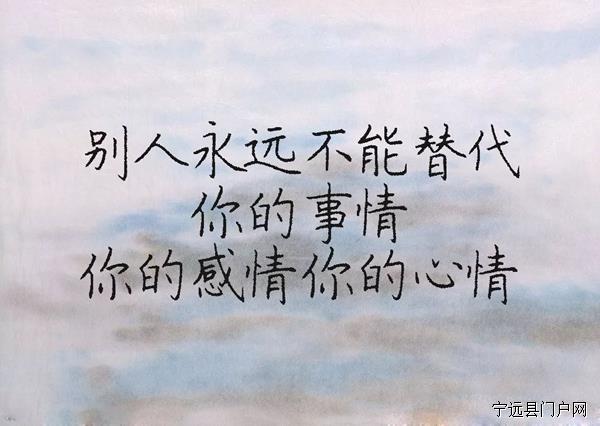 别人永远不能替代
你的事情
你的感情你的心情
宁远县门户网